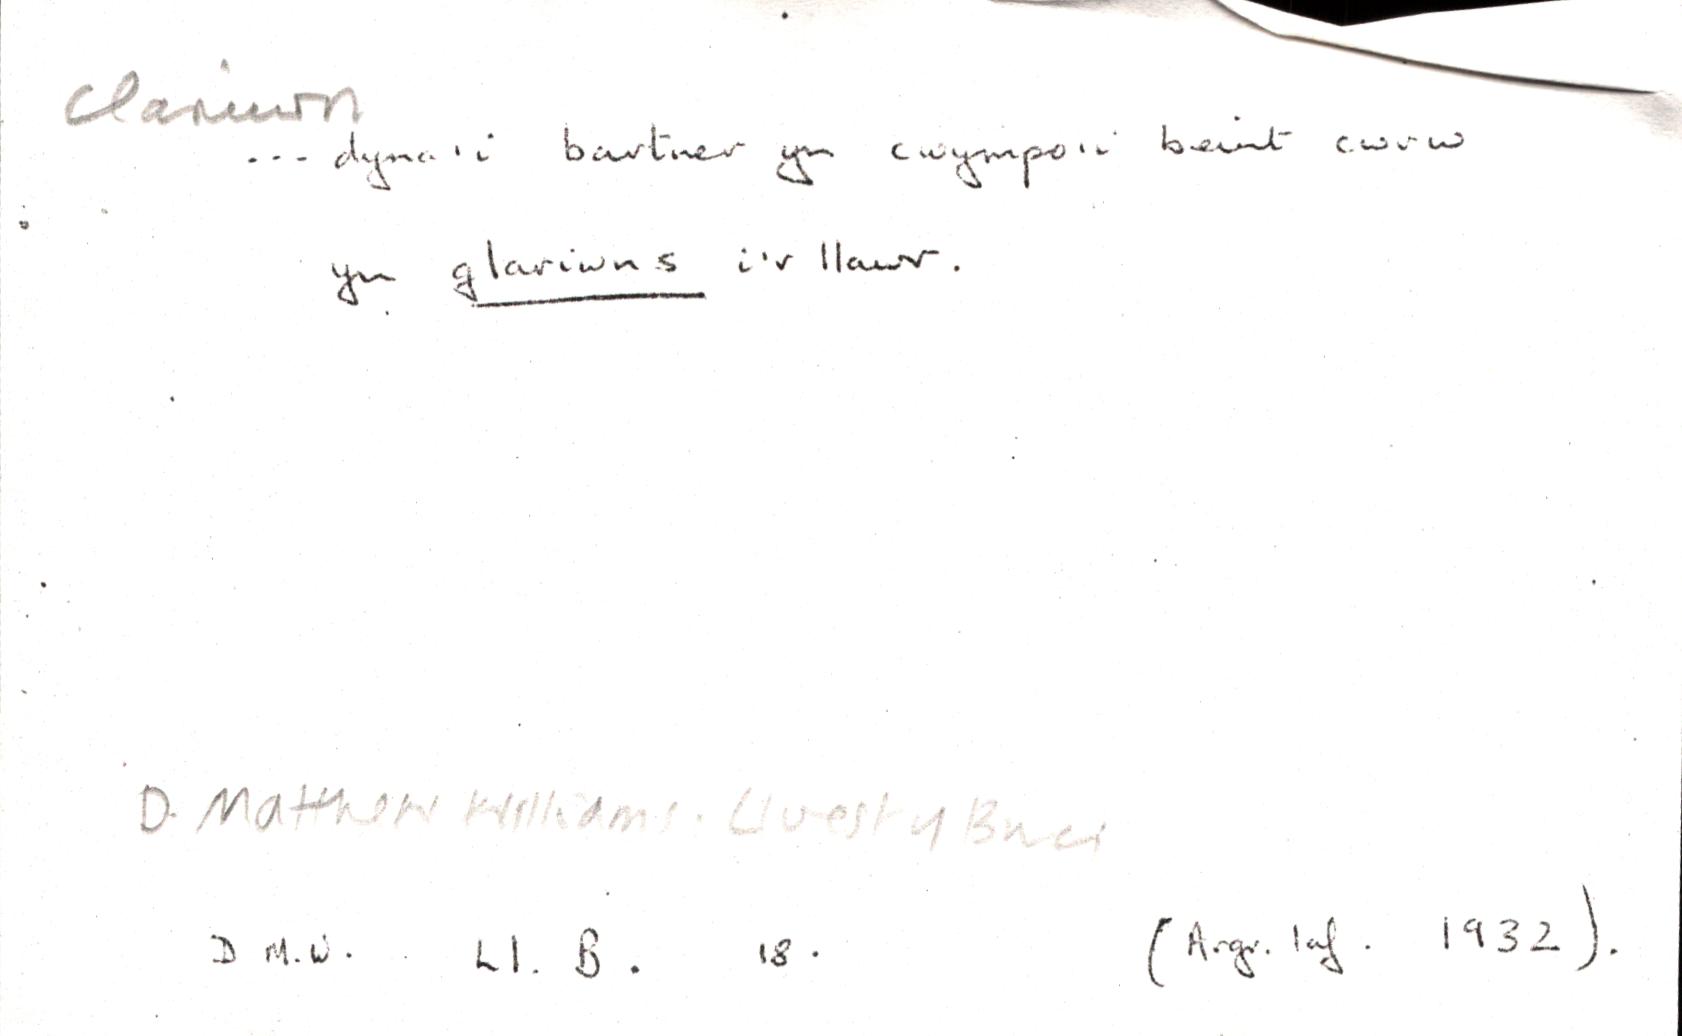 clariwn
... dyna'i bartner yn cwympo'i beint cwrw
yn glariwns i'r llawr.
D. Matthew Williams. Llwest y Bwci
D M.W. Ll. B. 18. (Argr. 1af. 1932).